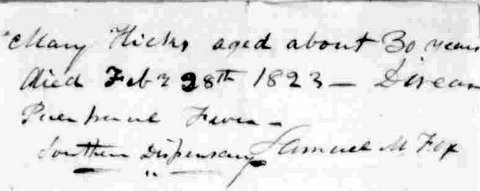 Mary Hicks aged about 30 years
died Feby 28th 1823 — Diseas
Puerperal Fever —
Southern Dispensary Samuel M Fox